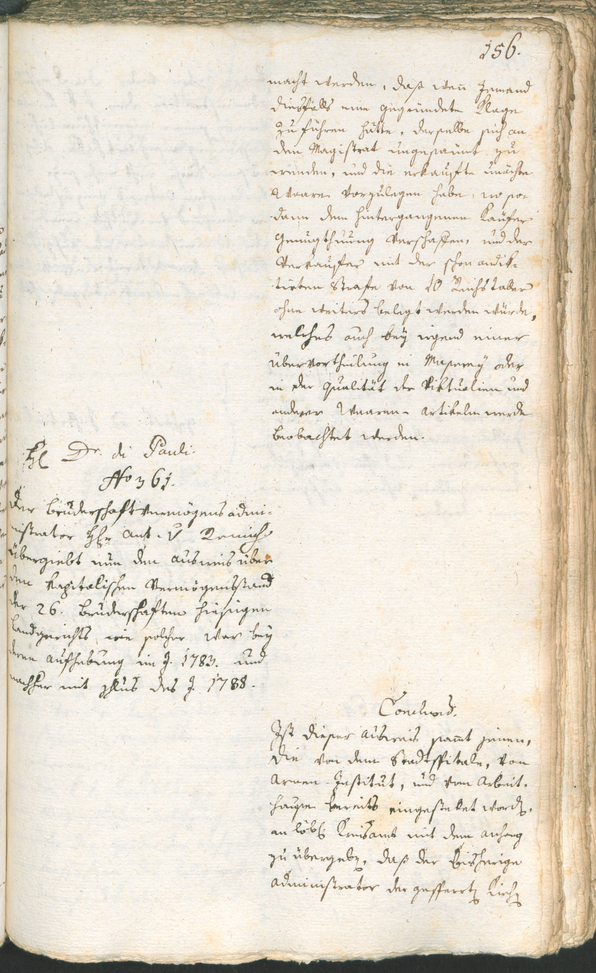 156.
macht werden, daß wenn Jemand
diesfalls eine gegründete Klage
zu führen hätte, derselbe sich an
den Magistrat ungesäumt zu
wenden, und die erkaufte unächte
Waare vorzulegen habe, wo so-
dann dem hintergangenen Kaufer
Genugthuung verschaffen, und der
Verkaufer mit der schon andik-
tirten Strafe von 10 Reichstaler
ohne weiters belegt werden würde,
welches auch bey irgend einer
übervortheilung in Masserey oder
in der Qualität der Viktualien und
anderer Waaren-Artikeln werde
beobachtet werden.
H Dr. di Pauli
No 361.
Der Bruderschaftvermögensadmi-
nistrator H Ant. v
übergiebt nun den Ausweis über
den kapitalischen Vermögensstand
der 26. Bruderschaften hiesigen
Landgerichts, wie solcher war bey
deren Aufhebung im J. 1783. und
nachher mit des J. 1788.
Conclus.
Ist dieser Ausweis samt jenen,
die von dem Stadtspitale, vom
Armen-Institut, und vom Arbeit-
hause bereits eingestellet worden,
an löbl Kreisamt mit dem Anhang
zu übergeben, daß der bisherige
Administrator der gesperrten Kirchen